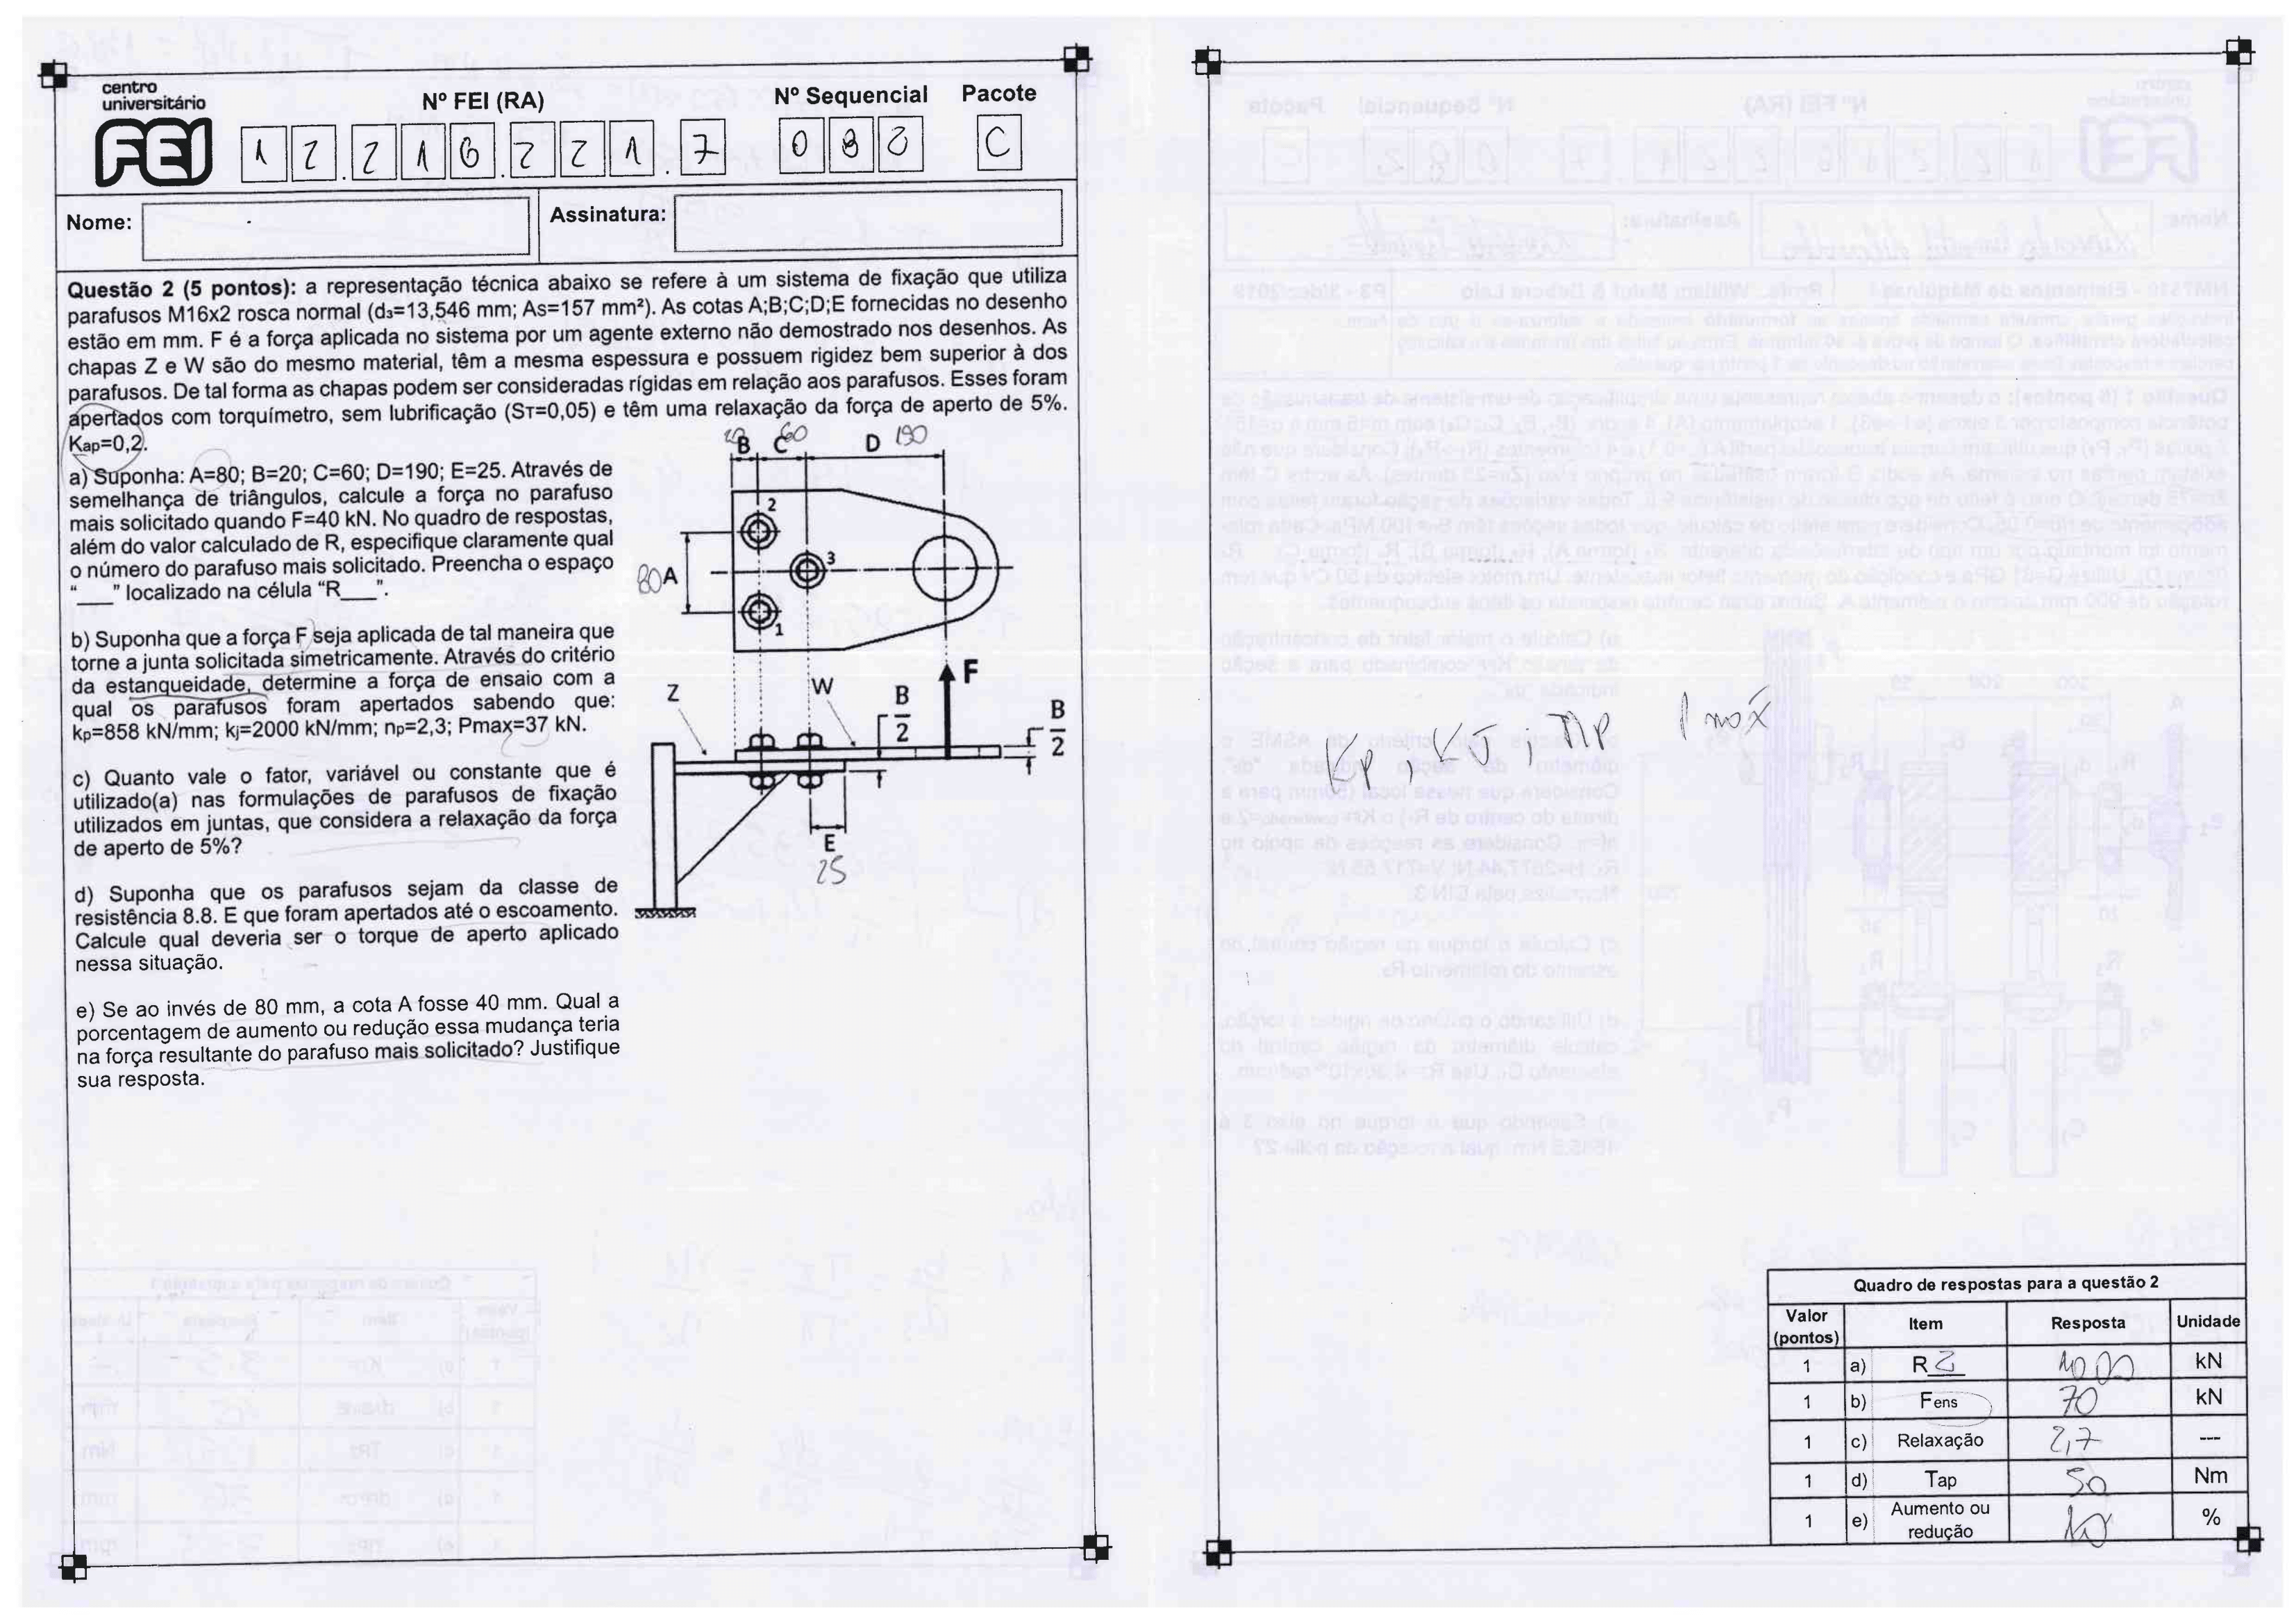 centro
universitário
FEI
Nº FEI (RA)
Nº Sequencial
Pacote
1 2 . 2 1 6 . 2 2 1 . 7
0 8 2
C
Nome:
Assinatura:
Questão 2 (5 pontos): a representação técnica abaixo se refere à um sistema de fixação que utiliza
parafusos M16x2 rosca normal (d₃=13,546 mm; As=157 mm²). As cotas A;B;C;D;E fornecidas no desenho
estão em mm. F é a força aplicada no sistema por um agente externo não demostrado nos desenhos. As
chapas Z e W são do mesmo material, têm a mesma espessura e possuem rigidez bem superior à dos
parafusos. De tal forma as chapas podem ser consideradas rígidas em relação aos parafusos. Esses foram
apertados com torquímetro, sem lubrificação (Sᴛ=0,05) e têm uma relaxação da força de aperto de 5%.
Kap=0,2.
a) Suponha: A=80; B=20; C=60; D=190; E=25. Através de
semelhança de triângulos, calcule a força no parafuso
mais solicitado quando F=40 kN. No quadro de respostas,
além do valor calculado de R, especifique claramente qual
o número do parafuso mais solicitado. Preencha o espaço
“___” localizado na célula “R___”.
b) Suponha que a força F seja aplicada de tal maneira que
torne a junta solicitada simetricamente. Através do critério
da estanqueidade, determine a força de ensaio com a
qual os parafusos foram apertados sabendo que:
kp=858 kN/mm; kj=2000 kN/mm; np=2,3; Pmax=37 kN.
c) Quanto vale o fator, variável ou constante que é
utilizado(a) nas formulações de parafusos de fixação
utilizados em juntas, que considera a relaxação da força
de aperto de 5%?
d) Suponha que os parafusos sejam da classe de
resistência 8.8. E que foram apertados até o escoamento.
Calcule qual deveria ser o torque de aperto aplicado
nessa situação.
e) Se ao invés de 80 mm, a cota A fosse 40 mm. Qual a
porcentagem de aumento ou redução essa mudança teria
na força resultante do parafuso mais solicitado? Justifique
sua resposta.
20 60 190
B C D
2
3
80 A
1
F
Z W B/2 B/2
E
25
Kp, KJ ; np Pmax
Quadro de respostas para a questão 2
Valor
(pontos) Item Resposta Unidade
1 a) R 2 kN
1 b) Fens 70 kN
1 c) Relaxação 2,7 ---
1 d) Tap 50 Nm
1 e) Aumento ou
redução 10 %